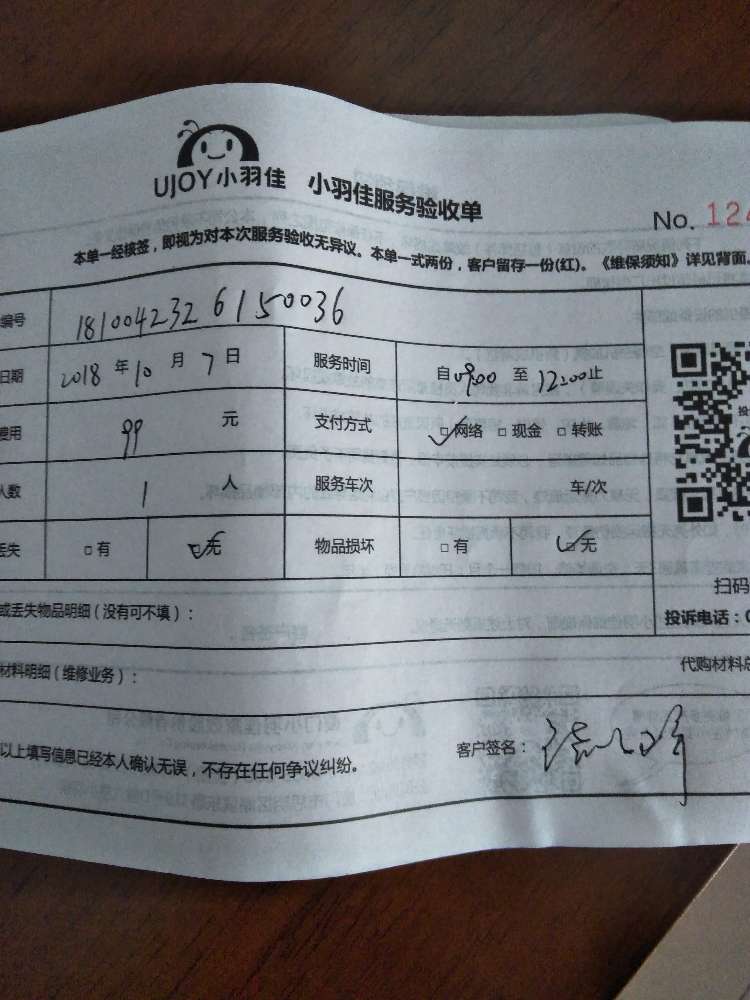 UJOY小羽佳 小羽佳服务验收单
No. 124
本单一经核签，即视为对本次服务验收无异议。本单一式两份，客户留存一份(红)。《维保须知》详见背面。
编号 181004232 6150036
日期 2018 年 10 月 7 日 服务时间 自 09:00 至 12:00止
费用 99 元 支付方式 ☑网络 □现金 □转账
人数 1 人 服务车次 车/次
丢失 □有 ☑无 物品损坏 □有 ☑无
扫码
投诉电话：0
或丢失物品明细（没有可不填）：
材料明细（维修业务）： 代购材料总
以上填写信息已经本人确认无误，不存在任何争议纠纷。 客户签名：